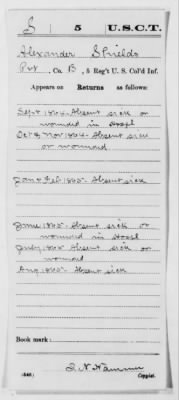 S 5 U.S.C.T.
Alexander Shields
Pvt, Co. B, 5 Reg't U. S. Col'd Inf.
Appears on Returns as follows:
Sept 1864. Absent sick or
wounded in Hospl
Oct & Nov 1864. Absent sick
or wounded
Jan & Feb 1865. Absent sick
June 1865. Absent sick or
wounded in Hospl
July 1865 Absent sick or
wounded
Aug 1865. Absent sick
Book mark:
(546)
Copyist.